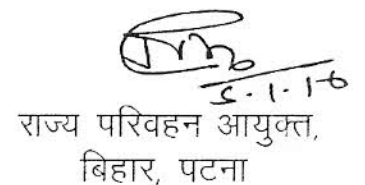 5.1.16
राज्य परिवहन आयुक्त,
बिहार, पटना